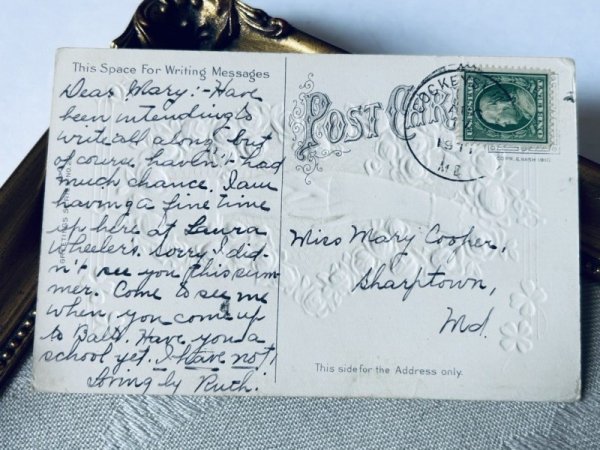 This Space For Writing Messages
Dear Mary:- Have
been intending to
write all along but
of course haven't had
much chance. I am
having a fine time
up here at Laura
Wheeler's. Sorry I did-
n't see you this sum-
mer. Come to see me
when you come up
to Balt. Have you a
school yet. I have not.
Lovingly Ruth.
POST CARD
1911
MD
U.S. POSTAGE
ONE CENT
Miss Mary Cooper,
Sharptown,
Md.
This side for the Address only.